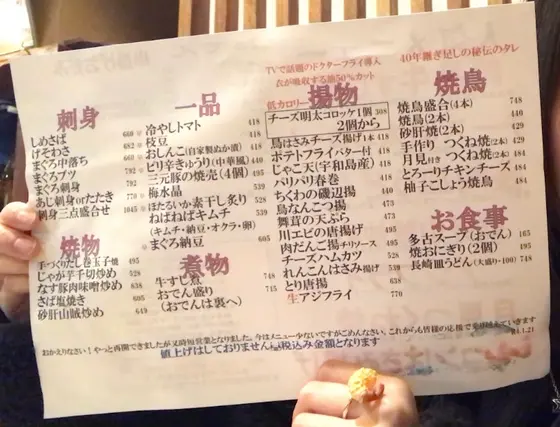 刺身
しめさば 660
げそわさ 482
まぐろ中落ち 792
まぐろブツ 792
まぐろ刺身 770
あじ刺身orたたき 770
刺身三点盛合せ 1045
焼物
手づくりだし巻玉子焼 495
じゃが芋千切炒め 528
なす豚肉味噌炒め 638
さば塩焼き 605
砂肝山賊炒め 649
一品
冷やしトマト 418
枝豆 418
おしんこ(自家製ぬか漬) 418
ピリ辛きゅうり(中華風) 440
三元豚の焼売(4個) 495
梅水晶 539
ほたるいか素干し炙り 528
ねばねばキムチ 539
(キムチ・納豆・オクラ・卵)
まぐろ納豆 605
煮物
牛すじ煮 748
おでん盛り 715
(おでんは裏へ)
TVで話題のドクターフライ導入
衣が吸収する油50%カット
低カロリー 揚物
チーズ明太コロッケ1個 308
2個から
鳥はさみチーズ揚げ1本 418
ポテトフライバター付 418
じゃこ天(宇和島産) 418
パリパリ春巻 418
ちくわの磯辺揚 440
鳥なんこつ揚 473
舞茸の天ぷら 473
川エビの唐揚げ 495
肉だんご揚チリソース 495
チーズハムカツ 528
れんこんはさみ揚げ 539
とり唐揚 638
生アジフライ 770
40年継ぎ足しの秘伝のタレ
焼鳥
焼鳥盛合(4本) 748
焼鳥(2本) 440
砂肝焼(2本) 429
手作り つくね焼(2本) 429
月見付き つくね焼(2本) 484
とろーりチキンチーズ 484
柚子こしょう焼鳥 484
お食事
多古スープ(おでん) 165
焼おにぎり(2個) 495
長崎皿うどん(大盛り・100) 748
おかえりなさい!やっと再開できましたが又時短営業となりました。今はメニュー少ないですがごめんなさい。これからも皆様の応援で乗り越えていきます
値上げはしておりません税込み金額となります
R4.1.21